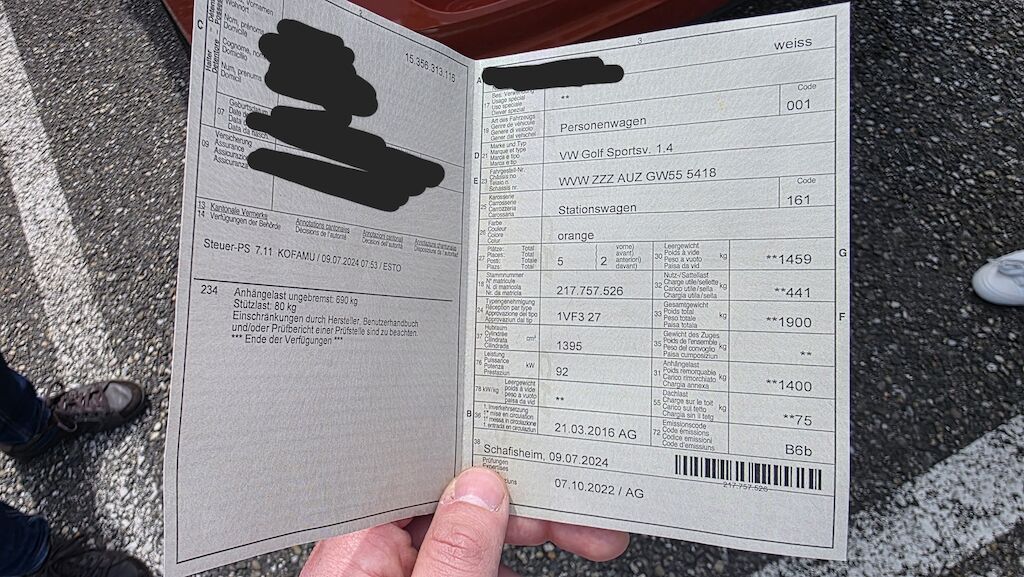 C
Halter
Wohnort
Nom, prénoms
Domicile
Cognome, nomi
Domicilio
Num, prenums
Domicil
15.356.313.116
07
Geburtsdatum
Date de
Data
Data da nasch
09
Versicherung
Assurance
Assicurazione
Assicuranza
13 Kantonale Vermerke
14 Verfügungen der Behörde
Annotations cantonales
Décisions de l'autorité
Annotazioni cantonali
Decisioni dell'autorità
Annotaziuns chantunalas
Disposiziuns da l'autoritad
Steuer-PS 7.11 KOFAMU / 09.07.2024 07:53 / ESTO
234 Anhängelast ungebremst: 690 kg
Stützlast: 80 kg
Einschränkungen durch Hersteller, Benutzerhandbuch
und/oder Prüfbericht einer Prüfstelle sind zu beachten.
*** Ende der Verfügungen ***
3
A
weiss
17
Bes. Verwendung
Usage spécial
Uso speciale
Diever spezial
**
19
Art des Fahrzeugs
Genre de véhicule
Genere di veicolo
Gener dal vehichel
Personenwagen
Code
001
D
21
Marke und Typ
Marque et type
Marca e tipo
Marca e tip
VW Golf Sportsv. 1.4
E
23
Fahrgestell-Nr.
Châssis no
Telaio n.
Schassis nr.
WVW ZZZ AUZ GW55 5418
25
Karosserie
Carrosserie
Carrozzeria
Carossaria
Stationswagen
Code
161
26
Farbe
Couleur
Colore
Colur
orange
27
Plätze: Total
Places: Total
Posti: Totale
Plazs: Total
5
vorne)
avant)
anteriori)
davant)
2
30
Leergewicht
Poids à vide
Peso a vuoto
Paisa da vid
kg
**1459
G
18
Stammnummer
N° matricule
N. di matricola
Nr. da matricla
217.757.526
32
Nutz-/Sattellast
Charge utile/sellette
Carico utile/sella
Chargia utila/sella
kg
**441
24
Typengenehmigung
Réception par type
Approvazione del tipo
Approvaziun dal tip
1VF3 27
33
Gesamtgewicht
Poids total
Peso totale
Paisa totala
kg
**1900
F
37
Hubraum
Cylindrée
Cilindrata
Cilindrada
cm³
1395
35
Gewicht des Zuges
Poids de l'ensemble
Peso del convoglio
Paisa cumposiziun
kg
**
76
Leistung
Puissance
Potenza
Prestaziun
kW
92
31
Anhängelast
Poids remorquable
Carico rimorchiato
Chargia annexa
kg
**1400
78 kW/kg
Leergewicht
poids à vide
peso a vuoto
paisa da vid
**
55
Dachlast
Charge sur le toit
Carico sul tetto
Chargia sin il tetg
kg
**75
B
36
1. Inverkehrsetzung
1re mise en circulation
1a messa in circolazione
1. entrada en circulaziun
21.03.2016 AG
72
Emissionscode
Code émissions
Codice emissioni
Code d'emissiuns
B6b
38
Schafisheim, 09.07.2024
217.757.526
Prüfungen
Expertises
07.10.2022 / AG